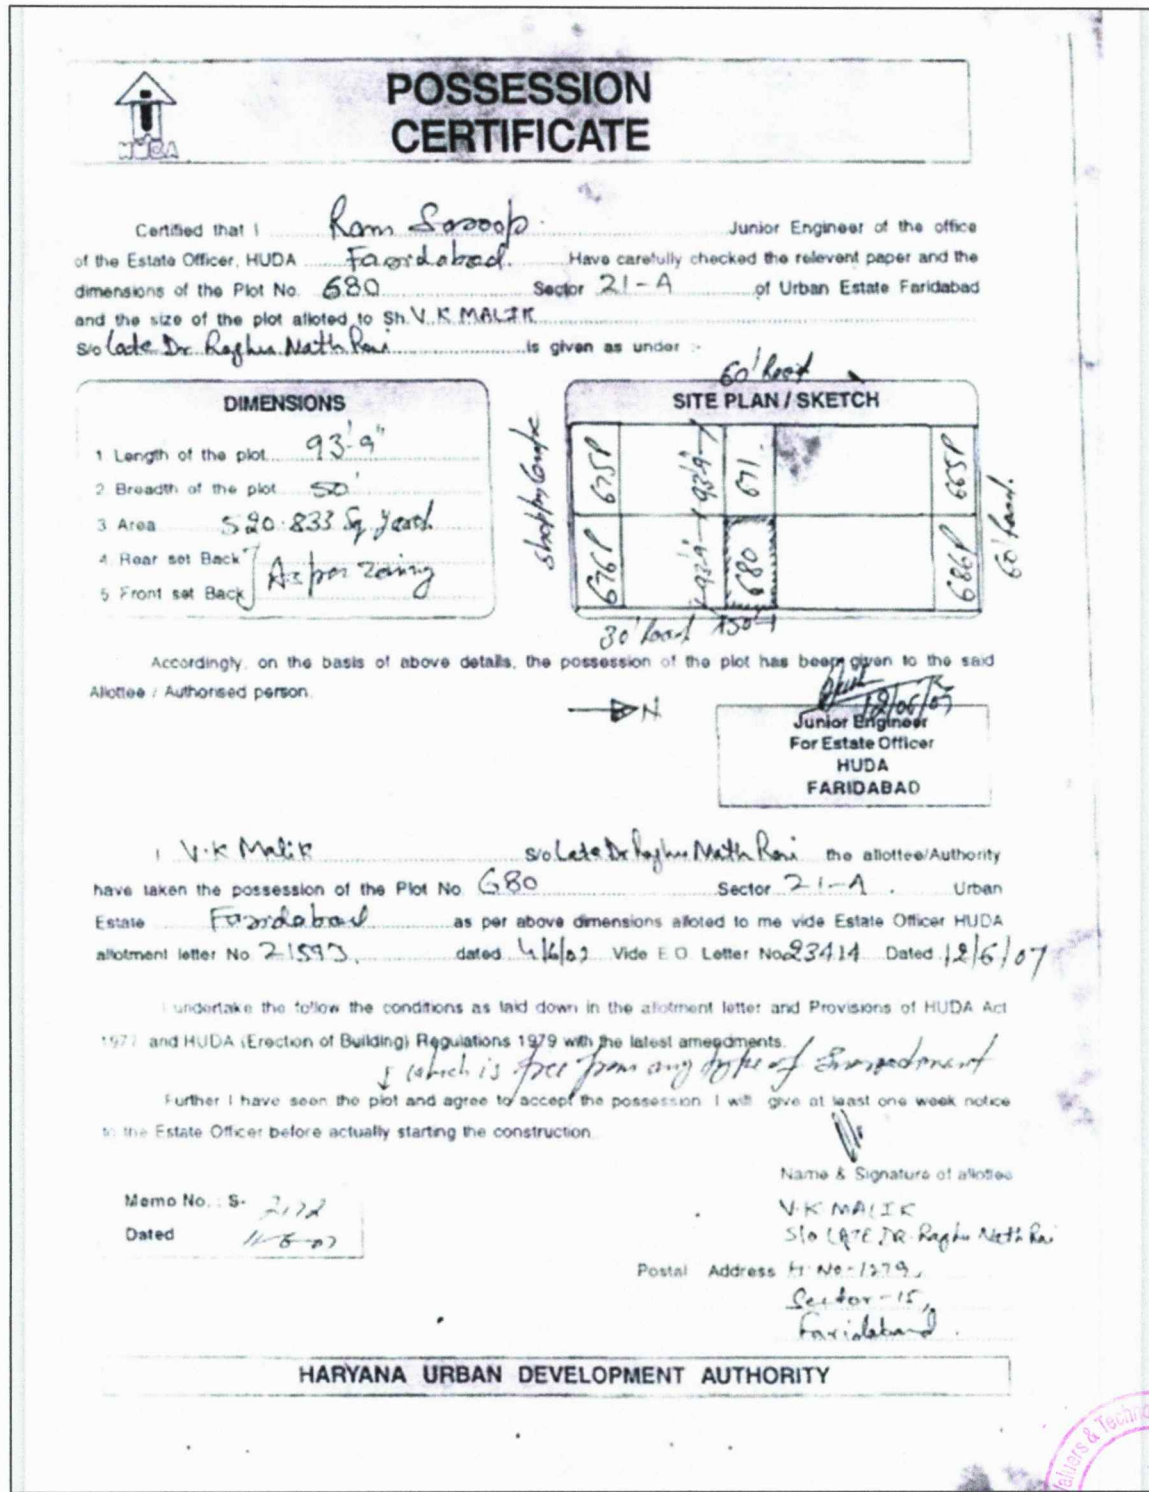 HUDA
POSSESSION
CERTIFICATE
Certified that I Ram Saroop Junior Engineer of the office
of the Estate Officer, HUDA Faridabad. Have carefully checked the relevent paper and the
dimensions of the Plot No. 680 Sector 21-A of Urban Estate Faridabad
and the size of the plot alloted to Sh. V. K MALIK
S/o Late Dr Raghu Nath Rai is given as under :-
60' Road
DIMENSIONS
1 Length of the plot 93'-9"
2 Breadth of the plot 50'
3 Area 520.833 Sq. Yard.
4 Rear set Back
5 Front set Back
As per zoning
SITE PLAN / SKETCH
675P 93'-9" 671 665P
676P 93'-9" 680 686P
60' Road.
30' Road 50'
Accordingly, on the basis of above details, the possession of the plot has been given to the said
Allottee / Authorised person.
N
12/06/07
Junior Engineer
For Estate Officer
HUDA
FARIDABAD
I V.K Malik S/o Late Dr Raghu Nath Rai the allottee/Authority
have taken the possession of the Plot No 680 Sector 21-A . Urban
Estate Faridabad as per above dimensions alloted to me vide Estate Officer HUDA
allotment letter No. dated Vide E.O. Letter No 23414 Dated 12/6/07
I undertake the follow the conditions as laid down in the allotment letter and Provisions of HUDA Act
1977 and HUDA (Erection of Building) Regulations 1979 with the latest amendments.
which is free from any type of
Further I have seen the plot and agree to accept the possession. I will give at least one week notice
to the Estate Officer before actually starting the construction.
Name & Signature of allottee
Memo No. : S-
Dated
V.K MALIK
S/o LATE DR. Raghu Nath Rai
Postal Address H. No-1279,
Sector-15,
Faridabad.
HARYANA URBAN DEVELOPMENT AUTHORITY
Valuers & Techno